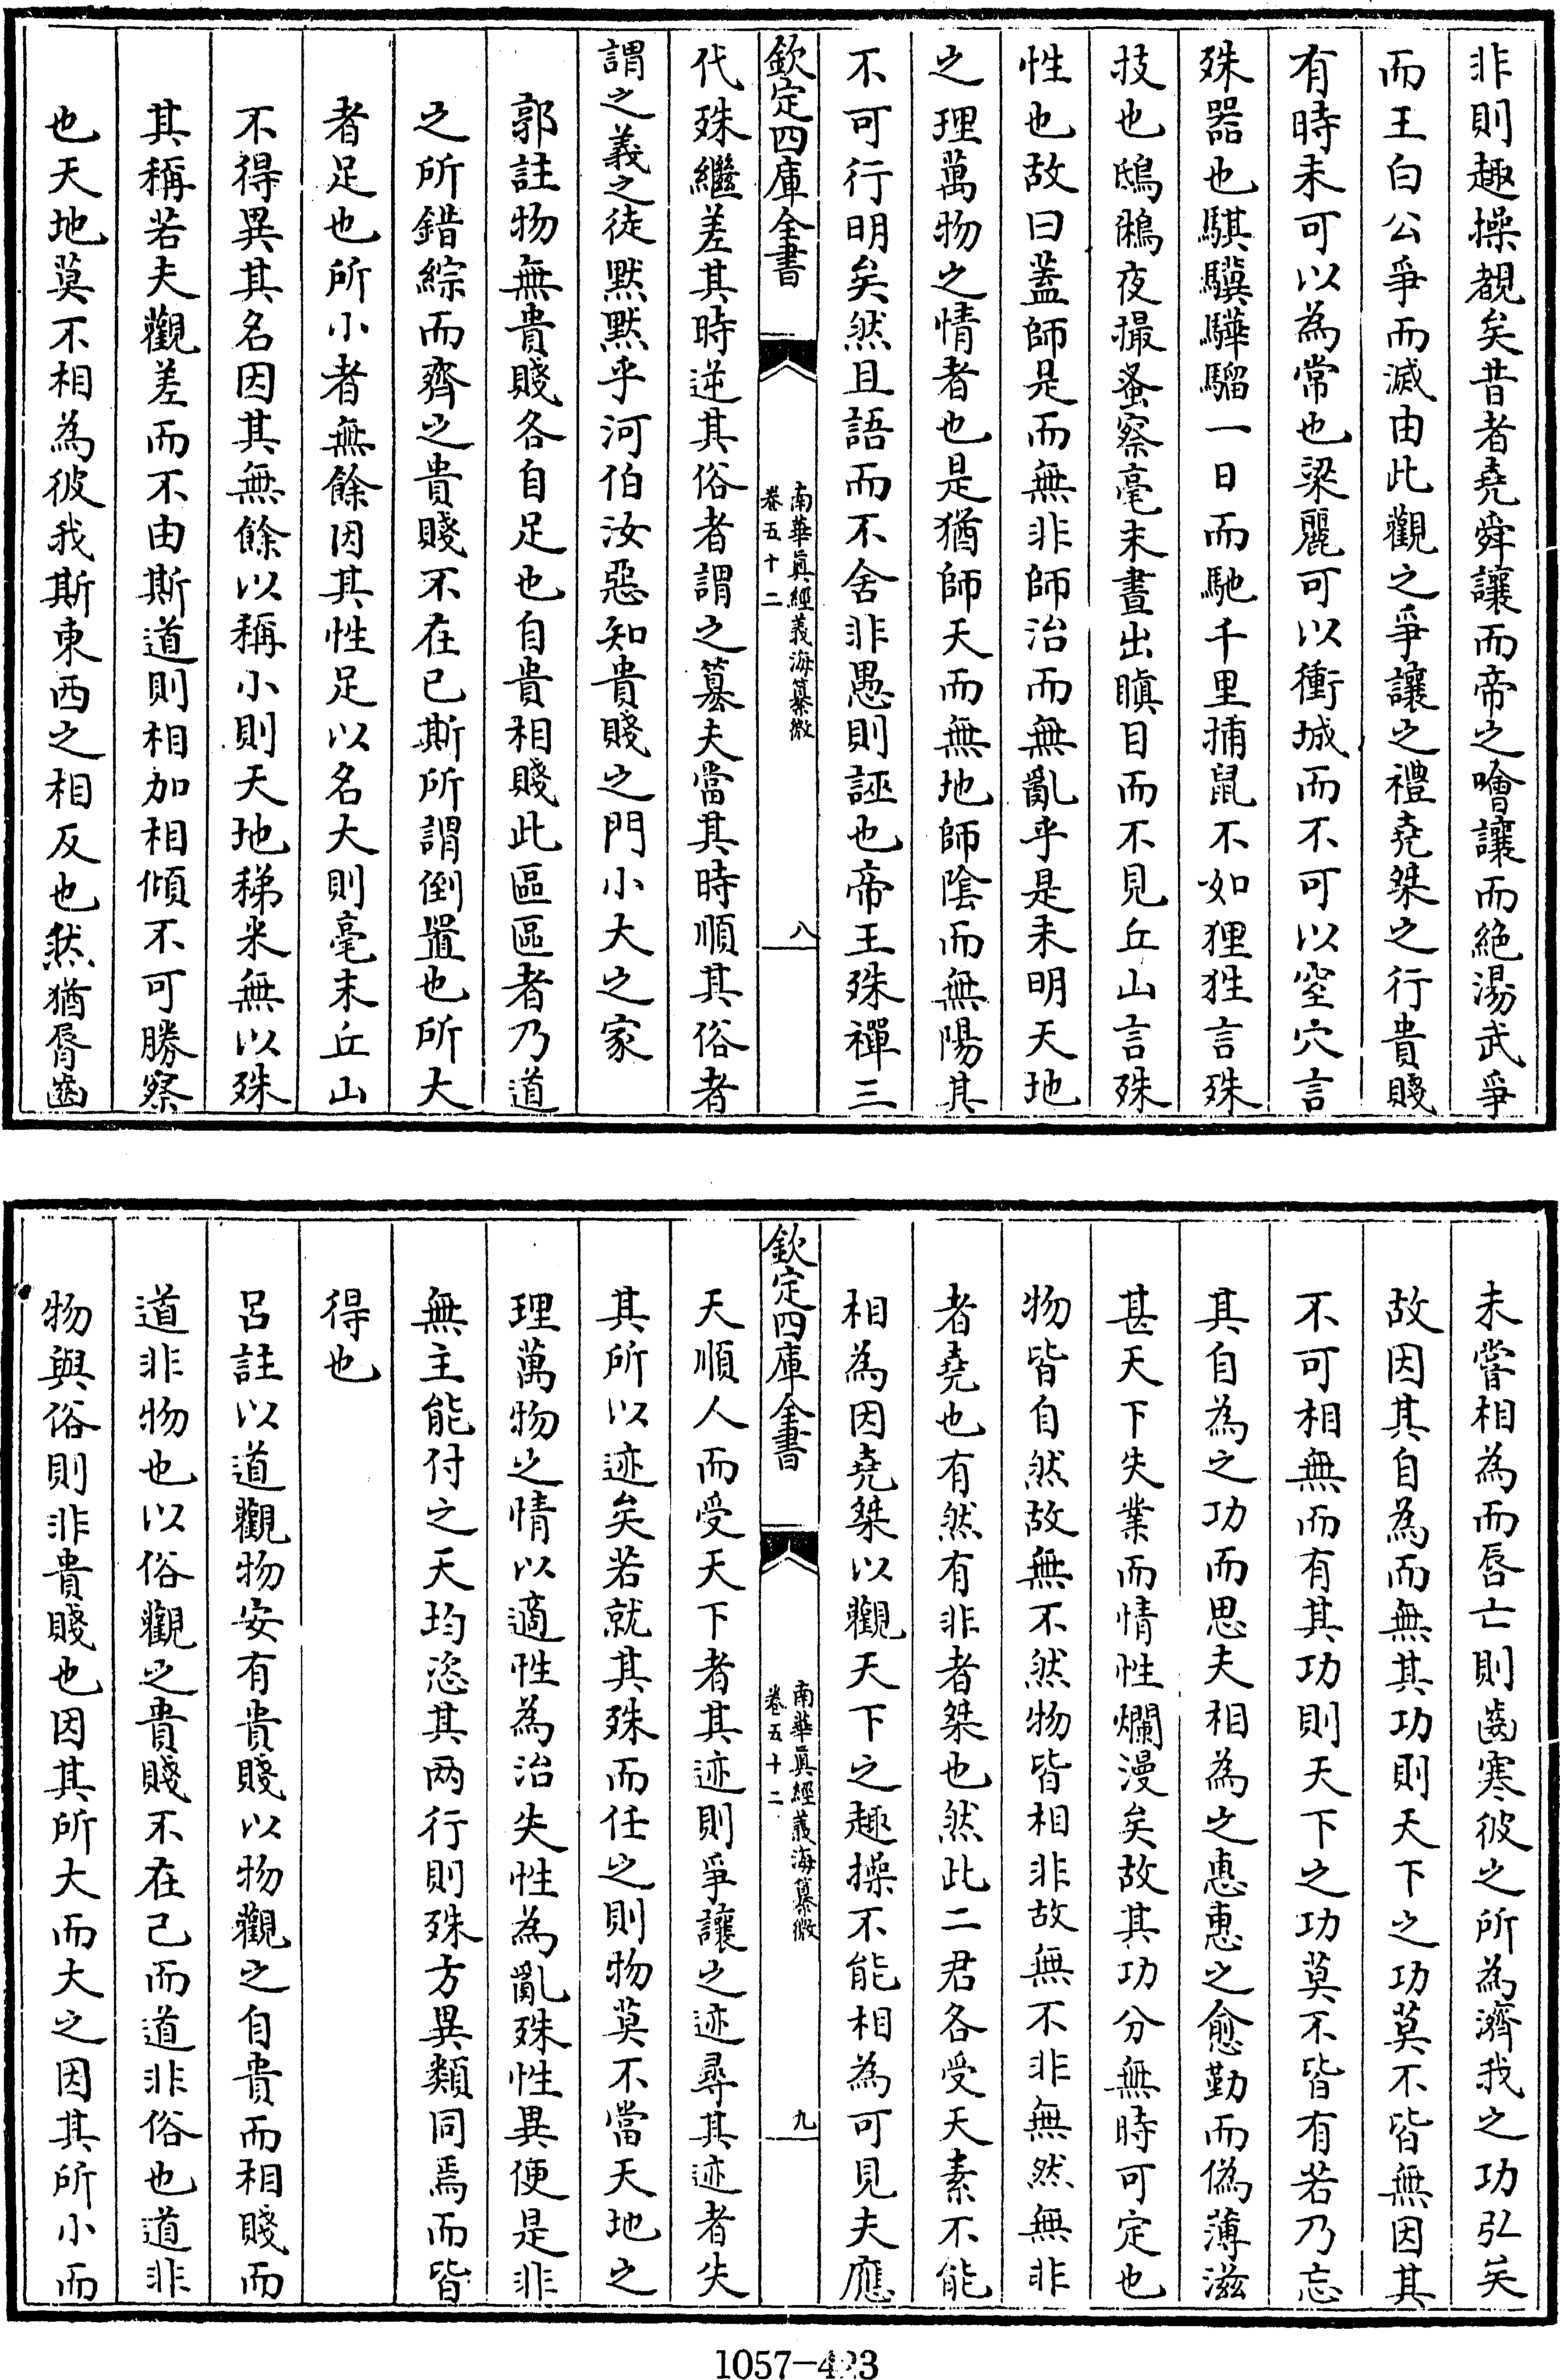 非則趣操覩矣昔者堯舜讓而帝之噲讓而絕湯武爭
而王白公爭而滅由此觀之爭讓之禮堯桀之行貴賤
有時未可以為常也梁麗可以衝城而不可以窒穴言
殊器也騏驥驊騮一日而馳千里捕鼠不如狸狌言殊
技也鴟鵂夜撮蚤察毫末晝出瞋目而不見丘山言殊
性也故曰蓋師是而無非師治而無亂乎是未明天地
之理萬物之情者也是猶師天而無地師陰而無陽其
不可行明矣然且語而不舍非愚則誣也帝王殊禪三
欽定四庫全書
南華真經義海纂微
卷五十二
八
代殊繼差其時逆其俗者謂之篡夫當其時順其俗者
謂之義之徒默默乎河伯汝惡知貴賤之門小大之家
郭註物無貴賤各自足也自貴相賤此區區者乃道
之所錯綜而齊之貴賤不在已斯所謂倒置也所大
者足也所小者無餘因其性足以名大則毫末丘山
不得異其名因其無餘以稱小則天地稊米無以殊
其稱若夫觀差而不由斯道則相加相傾不可勝察
也天地莫不相為彼我斯東西之相反也然猶脣齒
未嘗相為而唇亡則齒寒彼之所為濟我之功弘矣
故因其自為而無其功則天下之功莫不皆無因其
不可相無而有其功則天下之功莫不皆有若乃忘
其自為之功而思夫相為之惠惠之愈勤而偽薄滋
甚天下失業而情性爛漫矣故其功分無時可定也
物皆自然故無不然物皆相非故無不非無然無非
者堯也有然有非者桀也然此二君各受天素不能
相為因堯桀以觀天下之趣操不能相為可見夫應
欽定四庫全書
南華真經義海纂微
卷五十二
九
天順人而受天下者其迹則爭讓之迹尋其迹者失
其所以迹矣若就其殊而任之則物莫不當天地之
理萬物之情以適性為治失性為亂殊性異便是非
無主能付之天均恣其兩行則殊方異類同焉而皆
得也
呂註以道觀物安有貴賤以物觀之自貴而相賤而
道非物也以俗觀之貴賤不在己而道非俗也道非
物與俗則非貴賤也因其所大而大之因其所小而